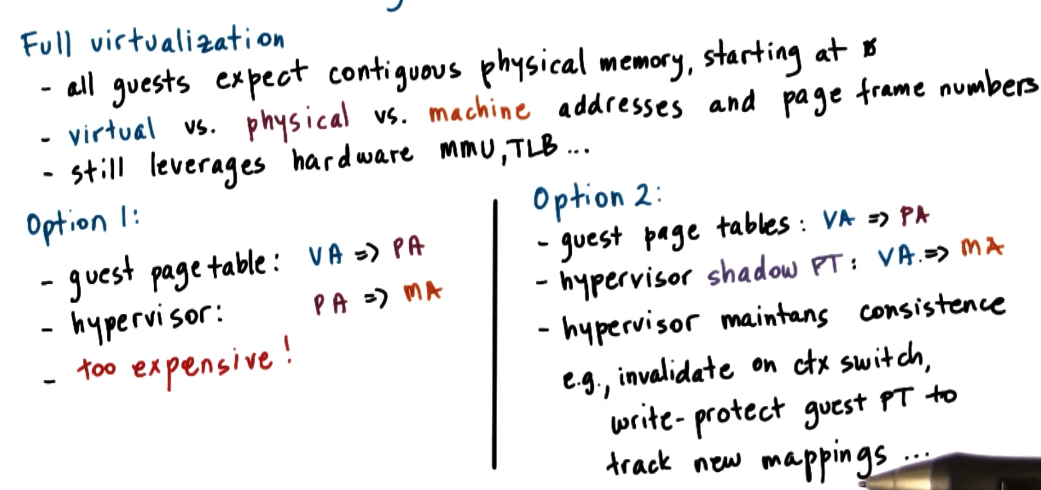 Full virtualization
- all guests expect contiguous physical memory, starting at 0
- virtual vs. physical vs. machine addresses and page frame numbers
- still leverages hardware MMU, TLB ...
Option 1:
- guest page table: VA => PA
- hypervisor: PA => MA
- too expensive!
Option 2:
- guest page tables: VA => PA
- hypervisor shadow PT: VA => MA
- hypervisor maintans consistence
e.g., invalidate on ctx switch,
write-protect guest PT to
track new mappings ...